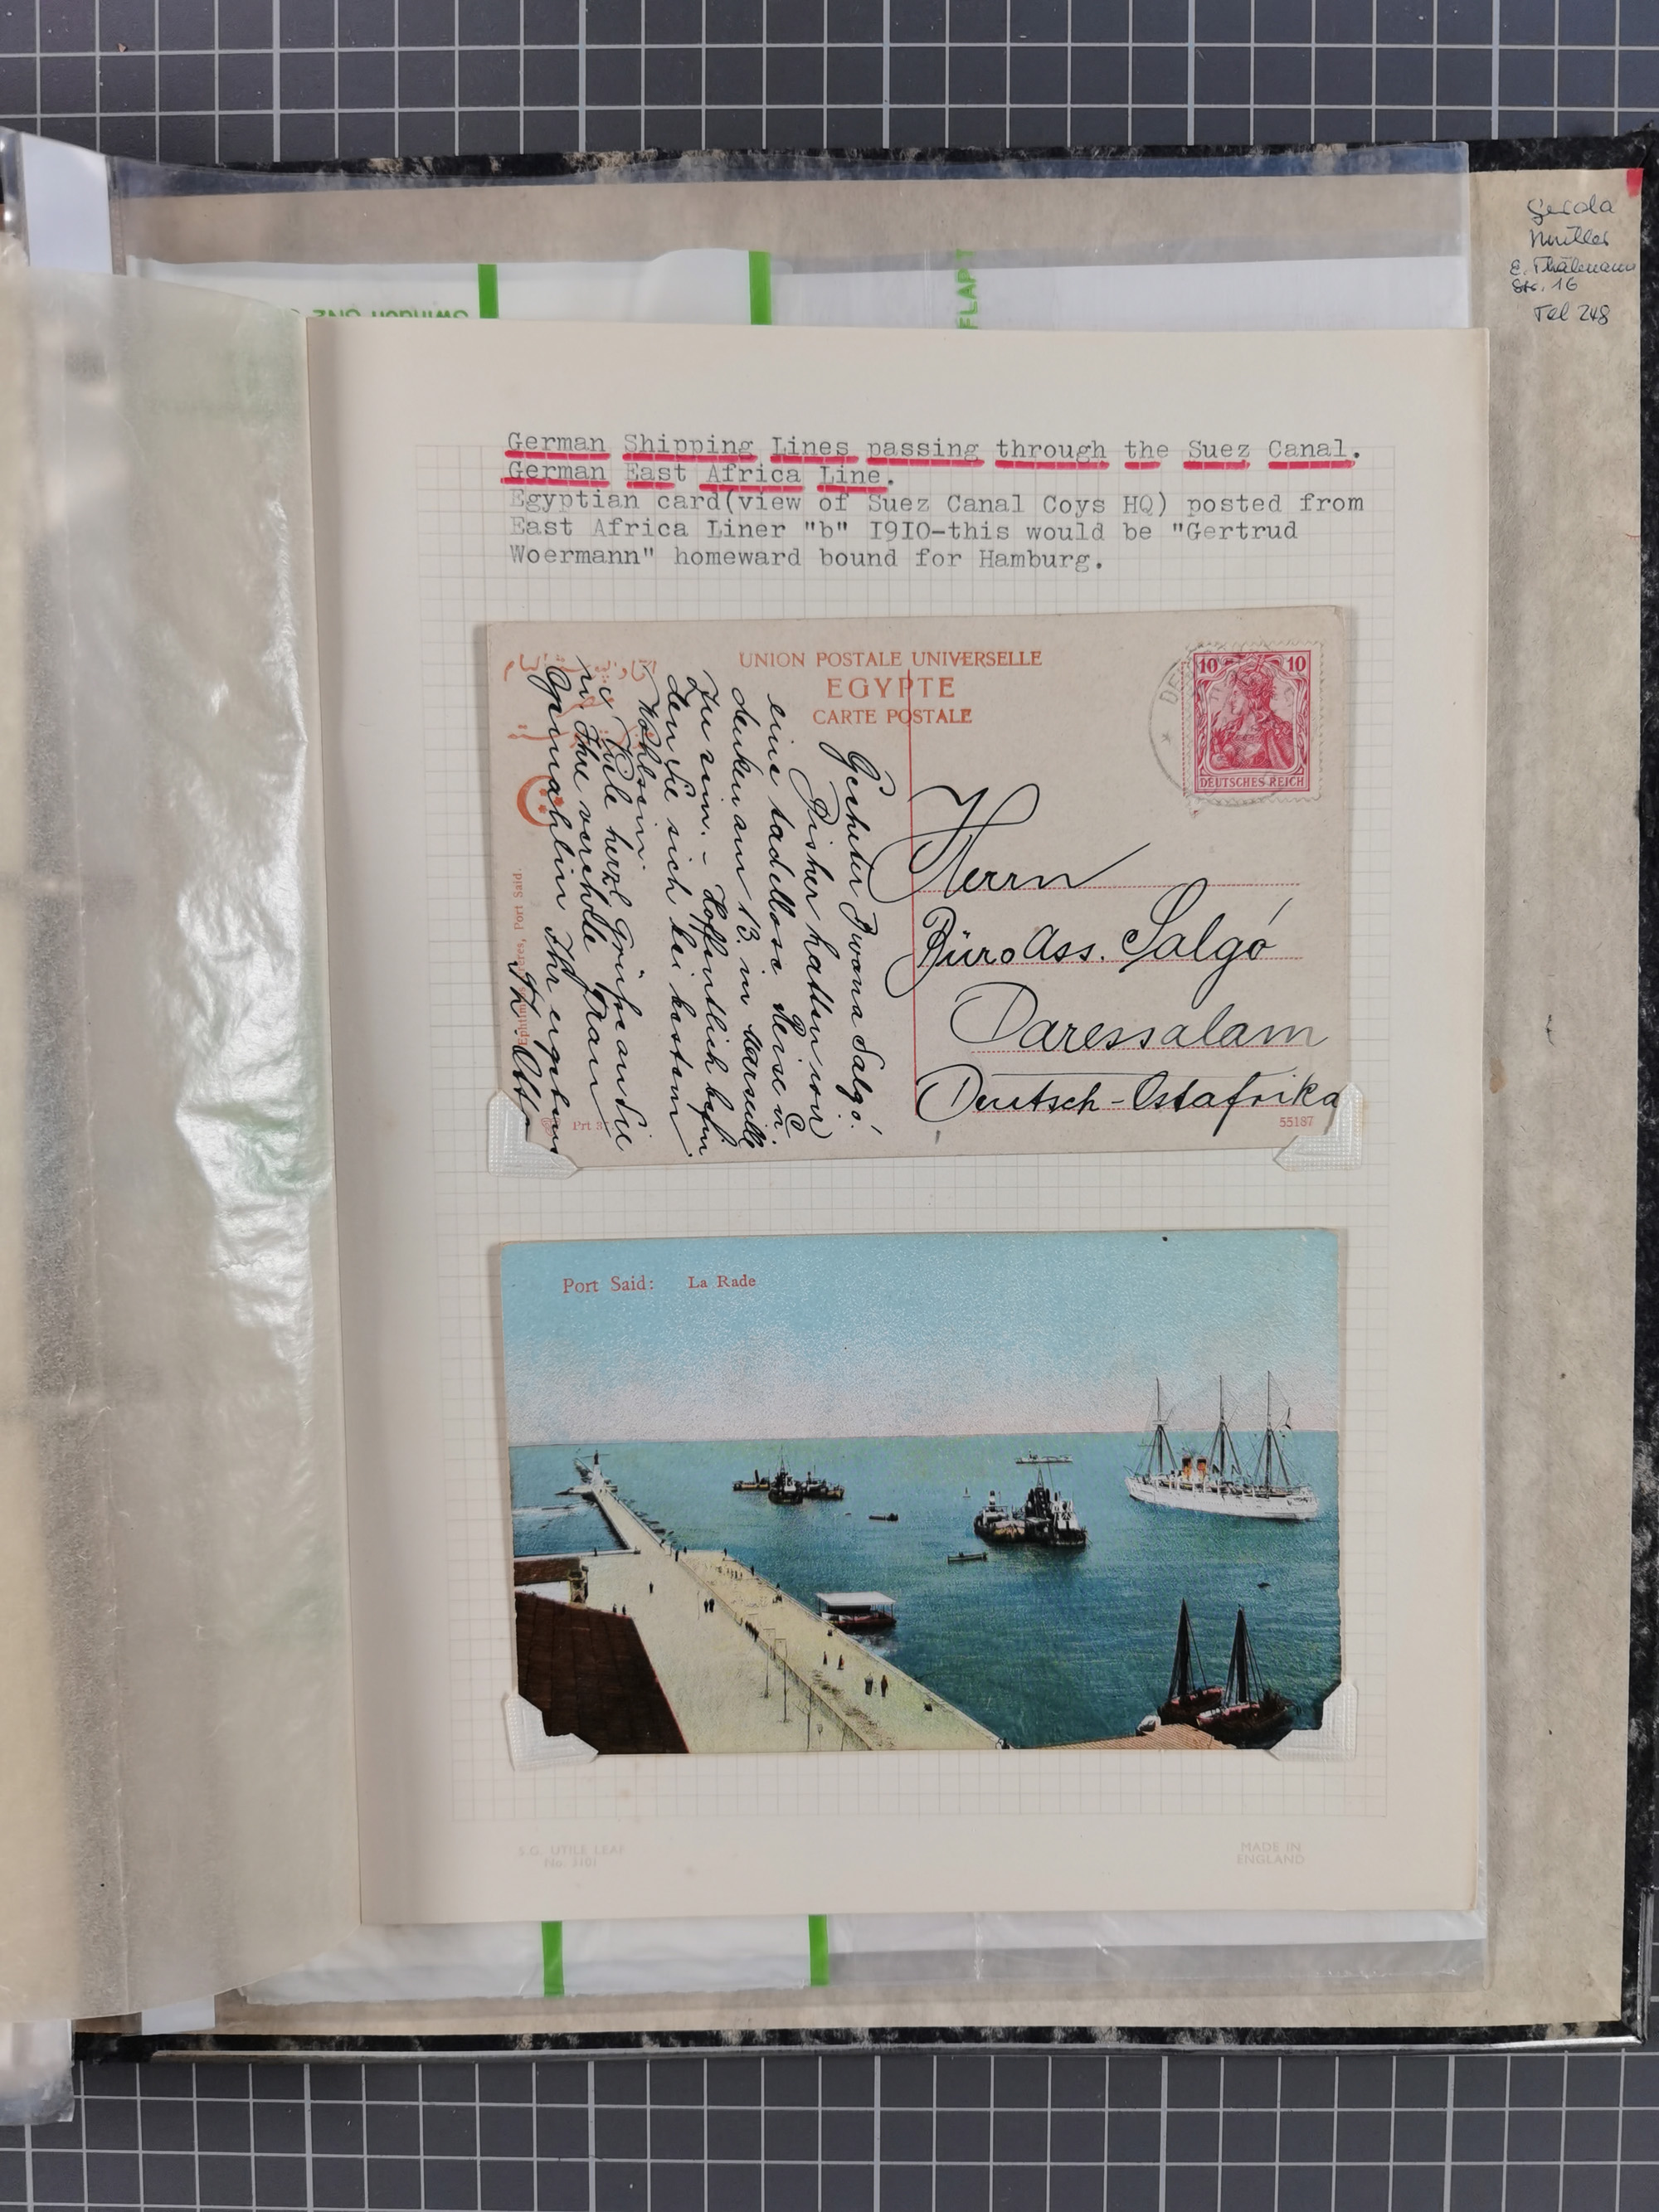 Gerda
Müller
E. Thälmann
Str. 16
Tel 248
FLAP
German Shipping Lines passing through the Suez Canal.
German East Africa Line.
Egyptian card(view of Suez Canal Coys HQ) posted from
East Africa Liner "b" I9I0-this would be "Gertrud
Woermann" homeward bound for Hamburg.
UNION POSTALE UNIVERSELLE
EGYPTE
CARTE POSTALE
10 10
DEUTSCHES REICH
DE
Geehrter Bwana Salgó!
Bisher hatten wir
eine tadellose Reise u.
denken am 13. in Marseille
zu sein. - Hoffentlich befin
den Sie sich bei bestem
Wohlsein.
Viele herzl Grüße an Sie
u. Ihre verehrte Frau
Gemahlin Ihr ergebens
Herrn
Büro Ass. Salgó
Daressalam
Deutsch-Ostafrika
Port Said.
Prt
55187
Port Said: La Rade
S.G. UTILE LEAF
No. 3101
MADE IN
ENGLAND